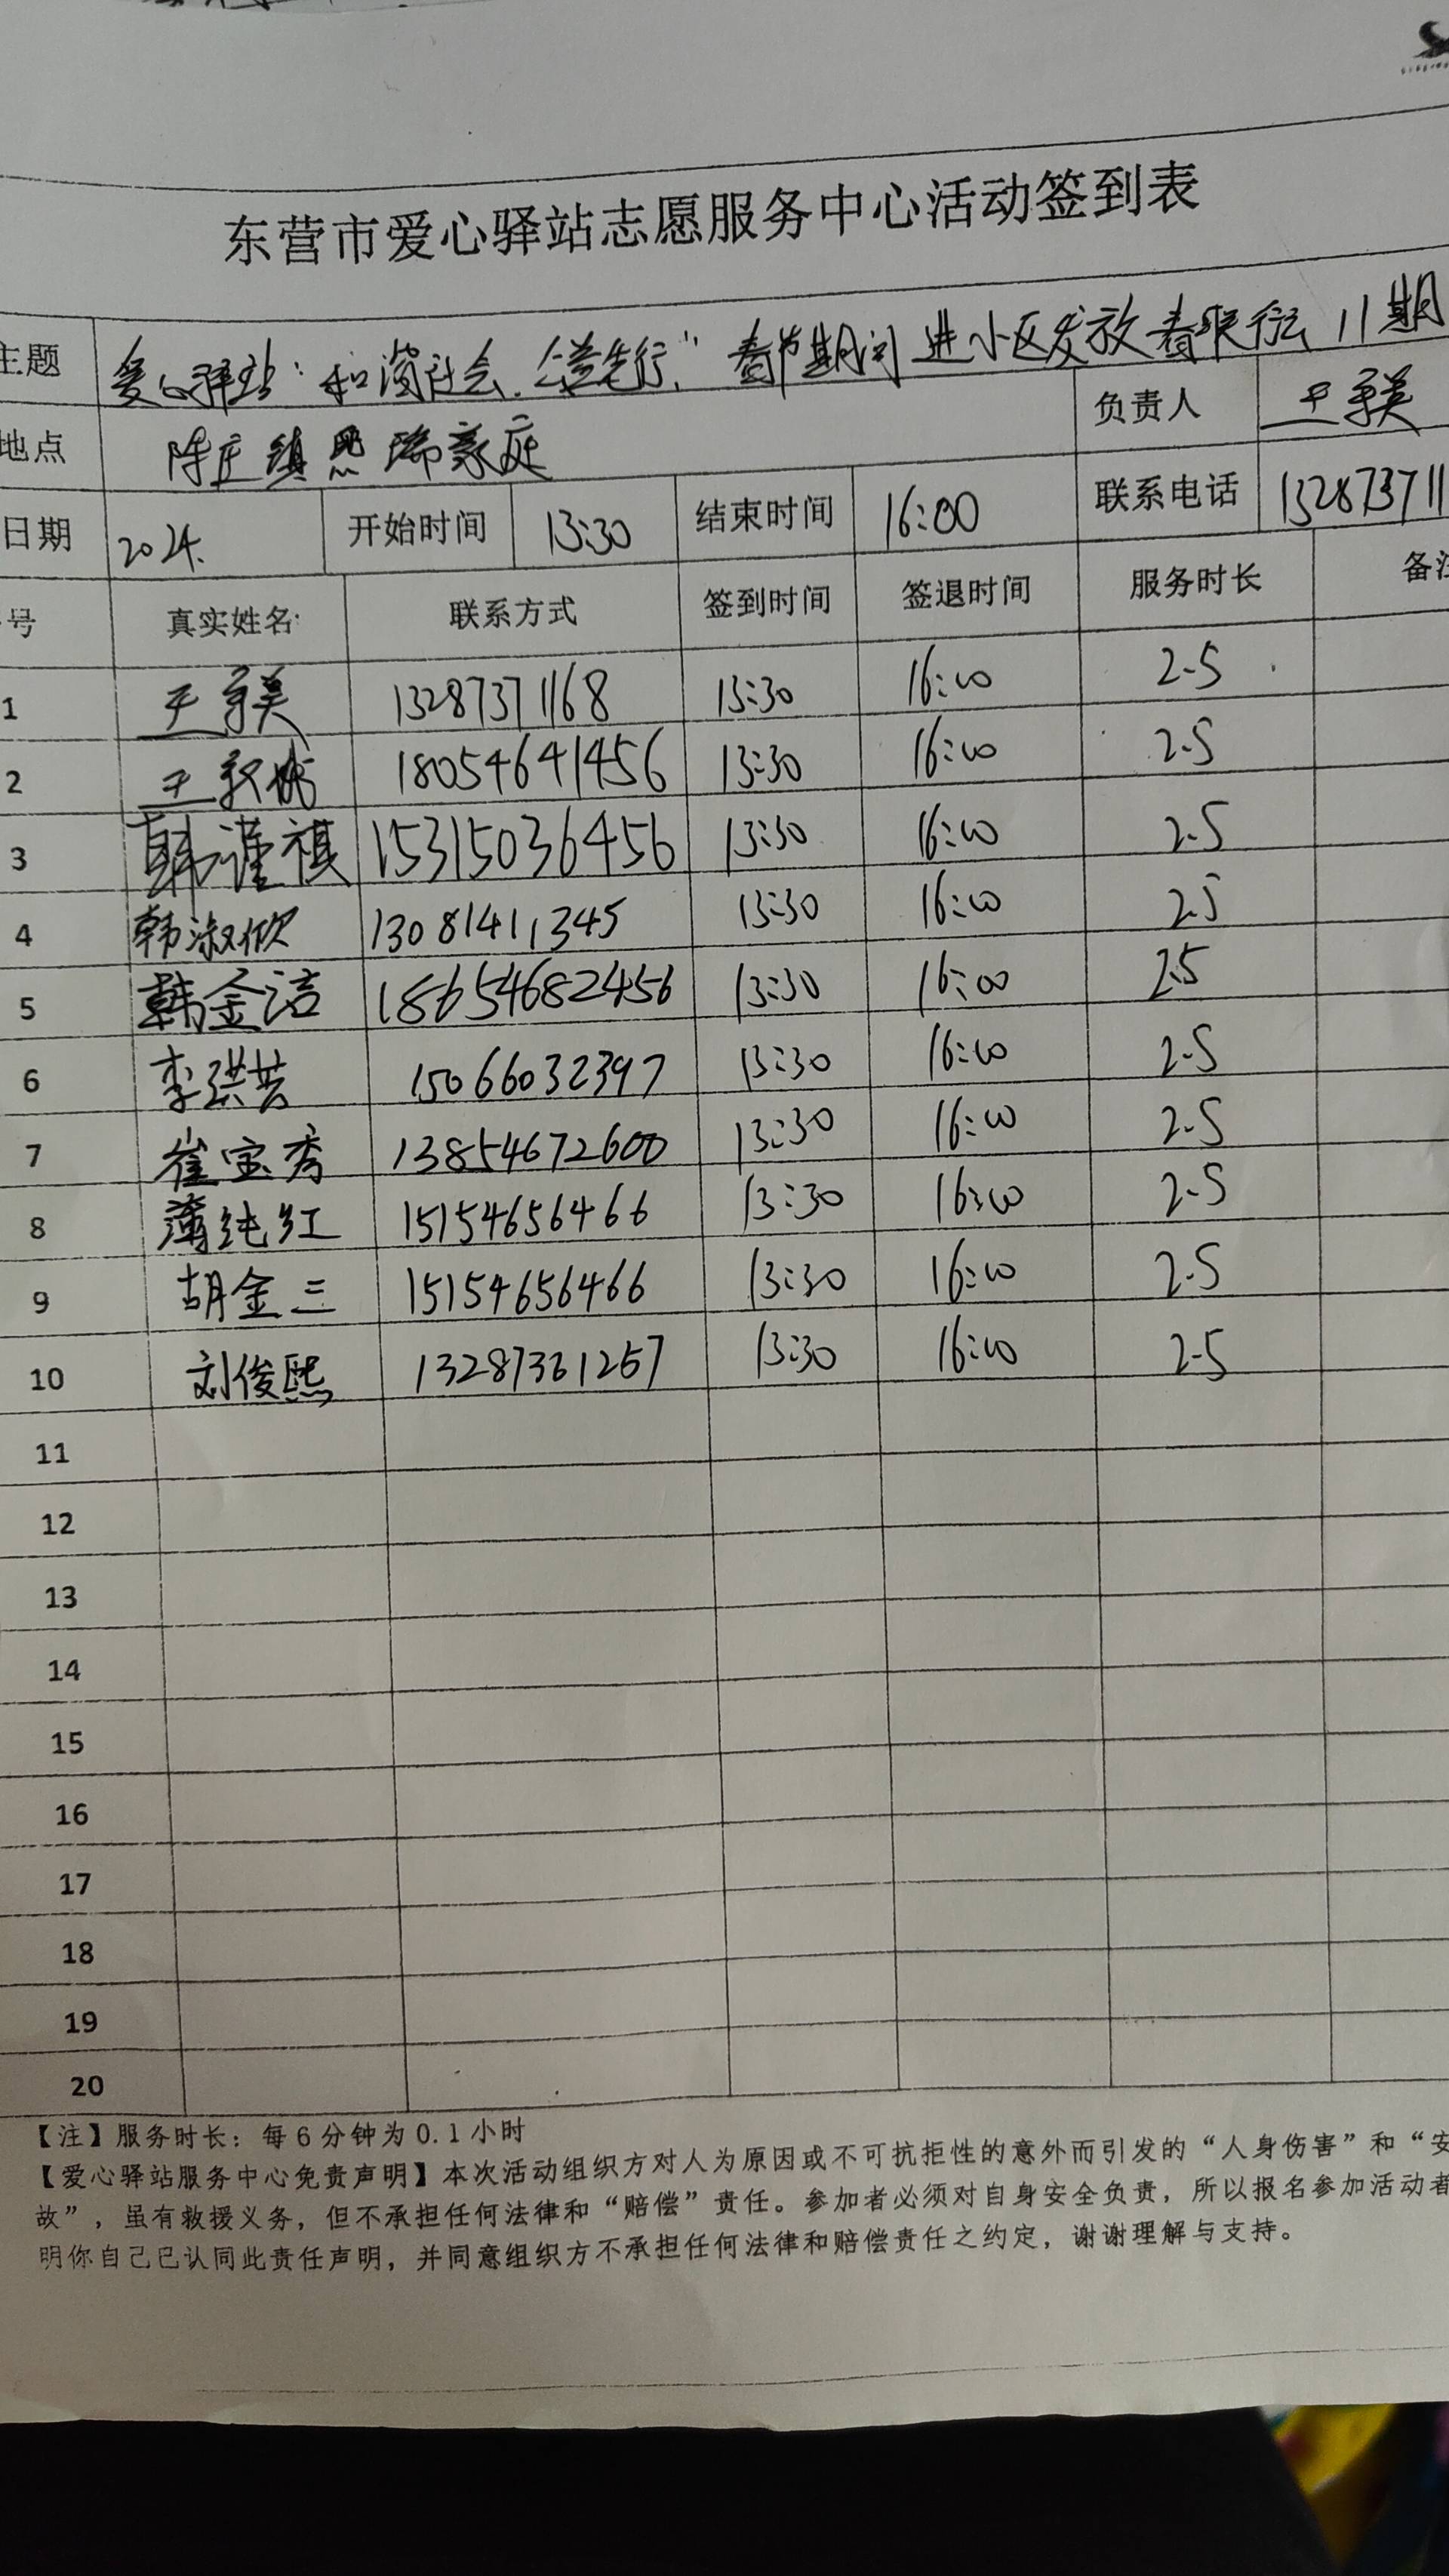 东营市爱心驿站志愿服务中心活动签到表
主题 爱心驿站"和谐社会、公益先行"春节期间进小区发放春联行动 11期
地点 陈庄镇恩瑞豪庭 负责人 王
日期 2024. 开始时间 13:30 结束时间 16:00 联系电话 132873711
号 真实姓名 联系方式 签到时间 签退时间 服务时长 备注
1 王 13287371168 13:30 16:00 2.5
2 王 18054641456 13:30 16:00 2.5
3 韩谨祺 15315036456 13:30 16:00 2.5
4 韩淑欣 13081411345 13:30 16:00 2.5
5 韩金洁 18654682456 13:30 16:00 2.5
6 李洪芸 15066032397 13:30 16:00 2.5
7 崔宝秀 13854672600 13:30 16:00 2.5
8 薄纯红 15154656466 13:30 16:00 2.5
9 胡金三 15154656466 13:30 16:00 2.5
10 刘俊熙 13287361257 13:30 16:00 2.5
11
12
13
14
15
16
17
18
19
20
【注】服务时长：每6分钟为0.1小时
【爱心驿站服务中心免责声明】本次活动组织方对人为原因或不可抗拒性的意外而引发的“人身伤害”和“安
故”，虽有救援义务，但不承担任何法律和“赔偿”责任。参加者必须对自身安全负责，所以报名参加活动者
明你自己已认同此责任声明，并同意组织方不承担任何法律和赔偿责任之约定，谢谢理解与支持。